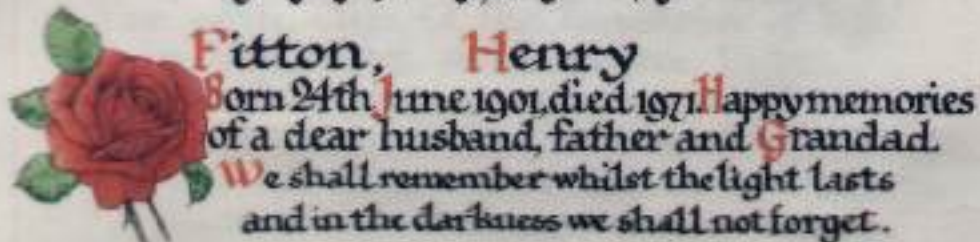 Fitton, Henry
Born 24th June 1901, died 1971. Happy memories
of a dear husband, father and Grandad.
We shall remember whilst the light lasts
and in the darkness we shall not forget.